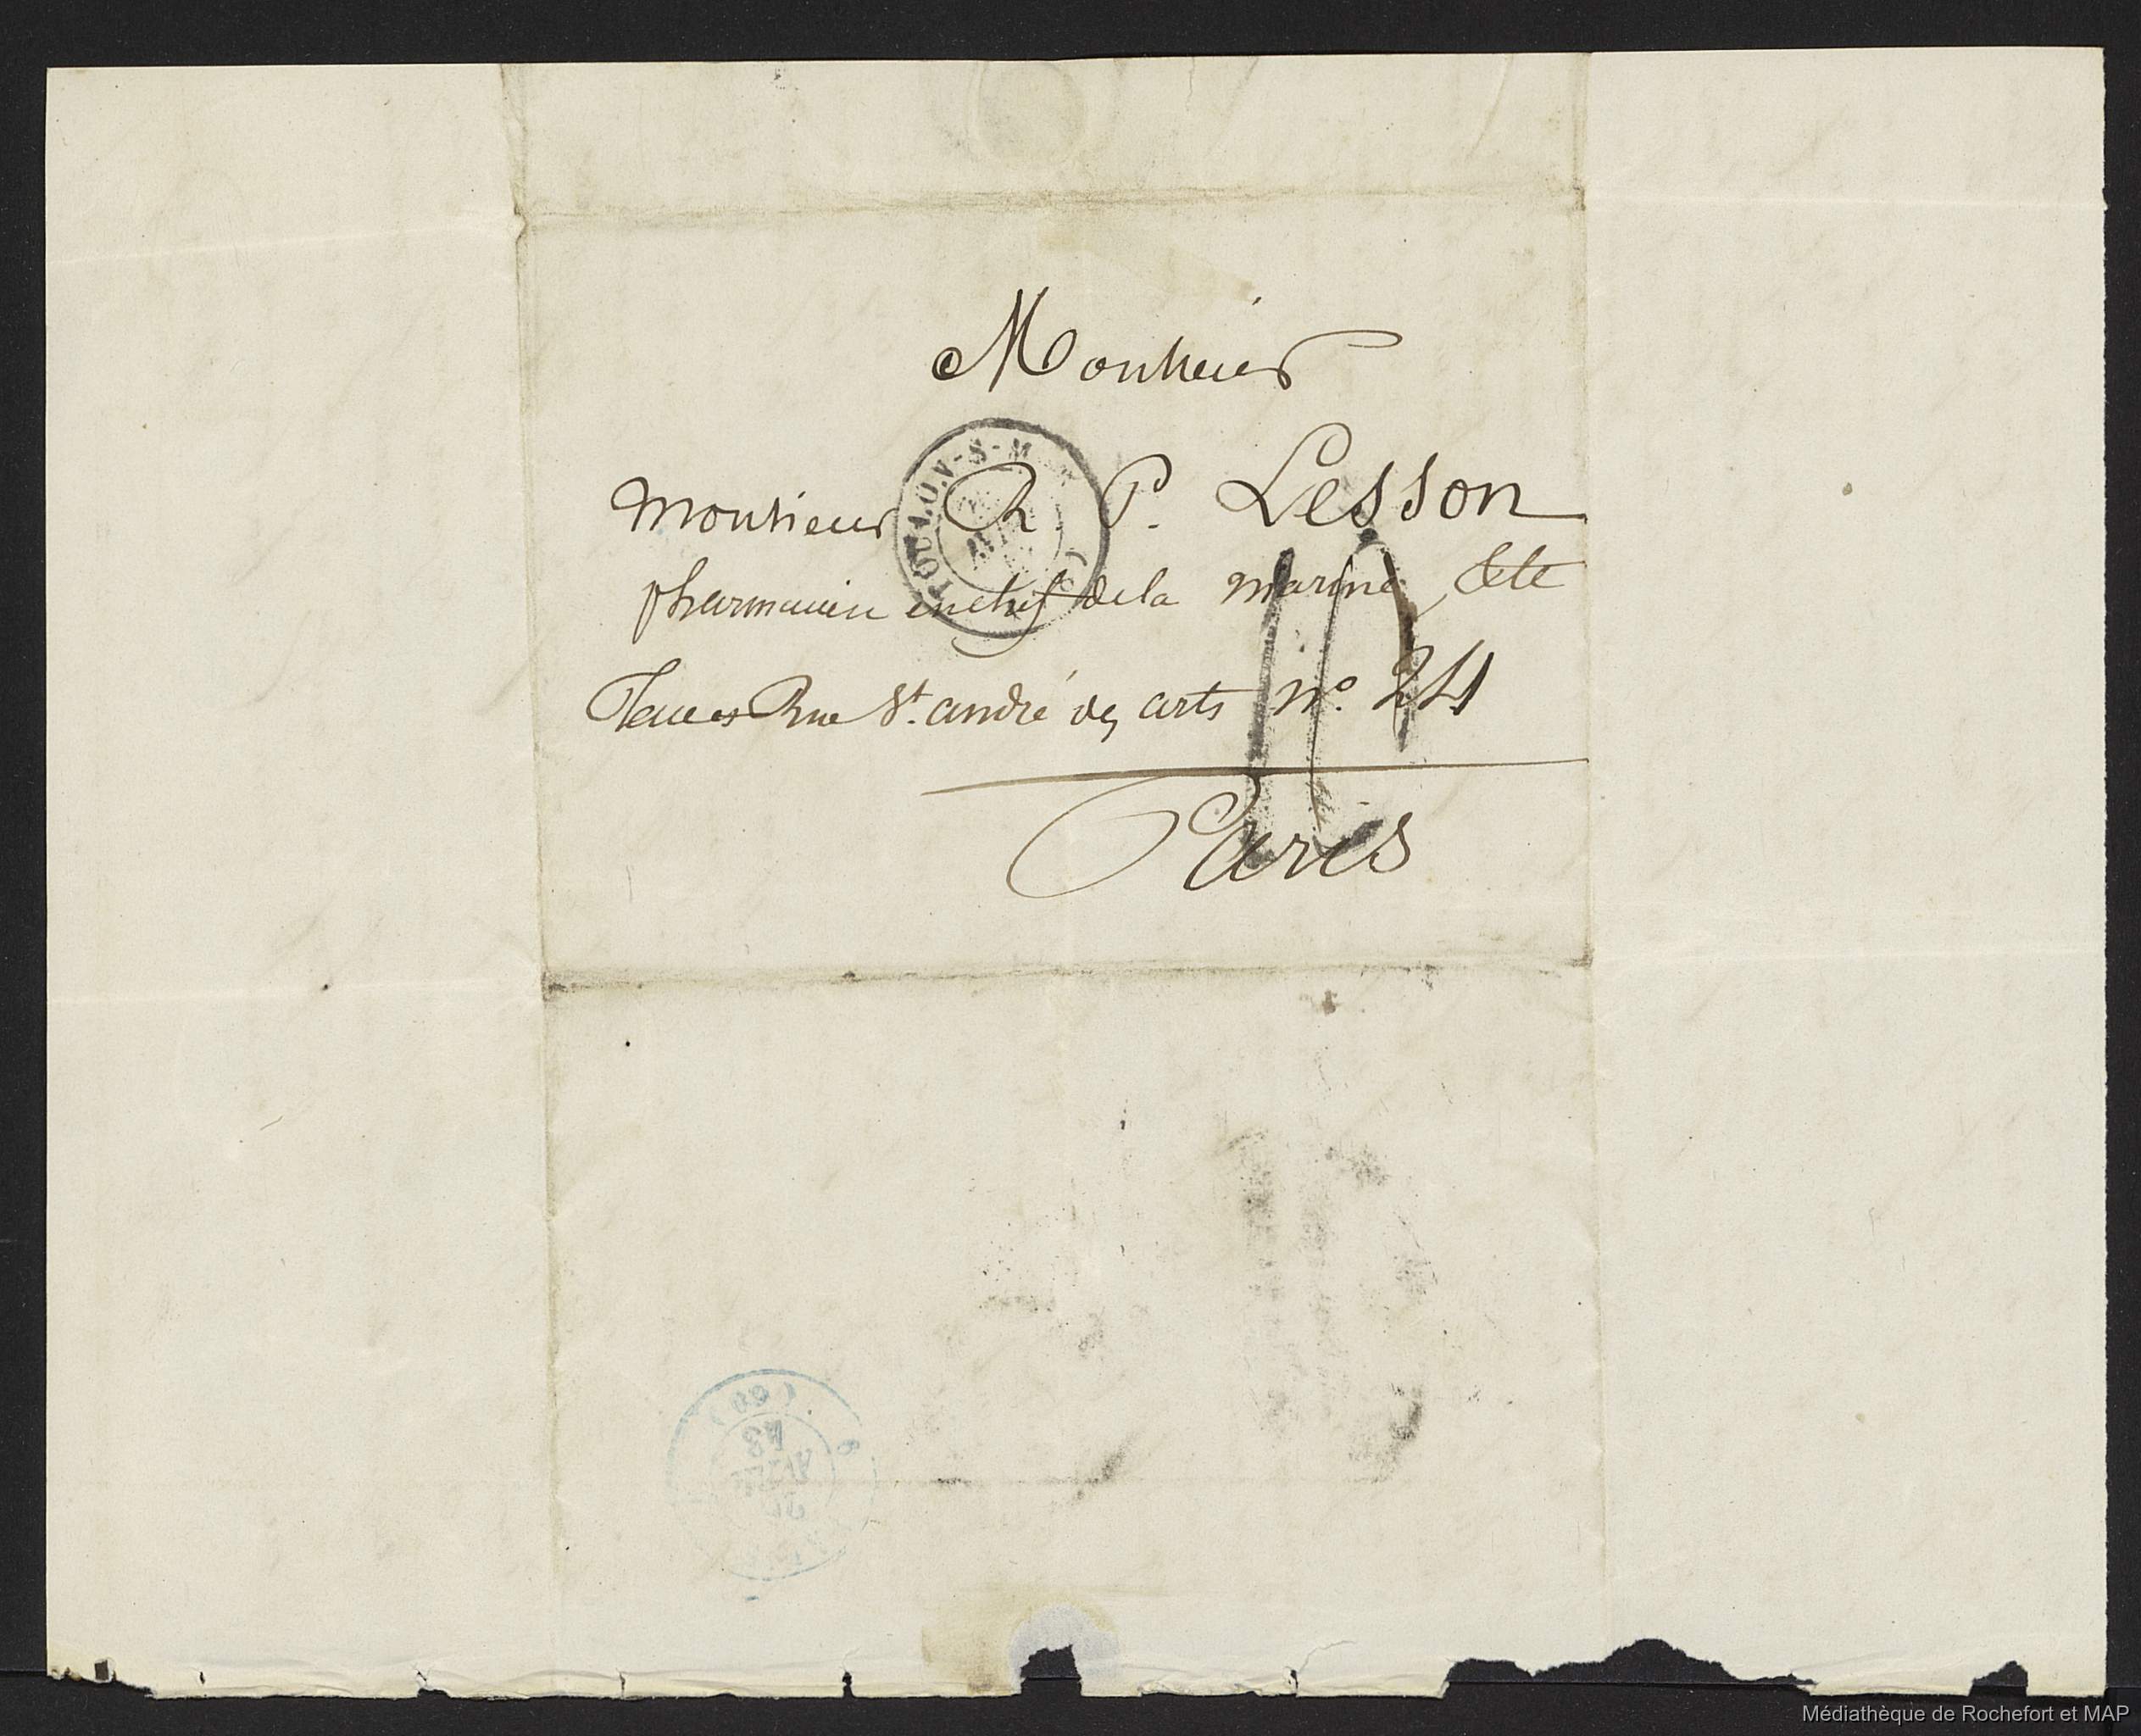 Monsieur
TOULON-S-M
Monsieur R. P. Lesson
pharmacien en chef de la marine, &te
Rue St. andré des arts No. 24
Paris
(60)
43
Médiathèque de Rochefort et MAP